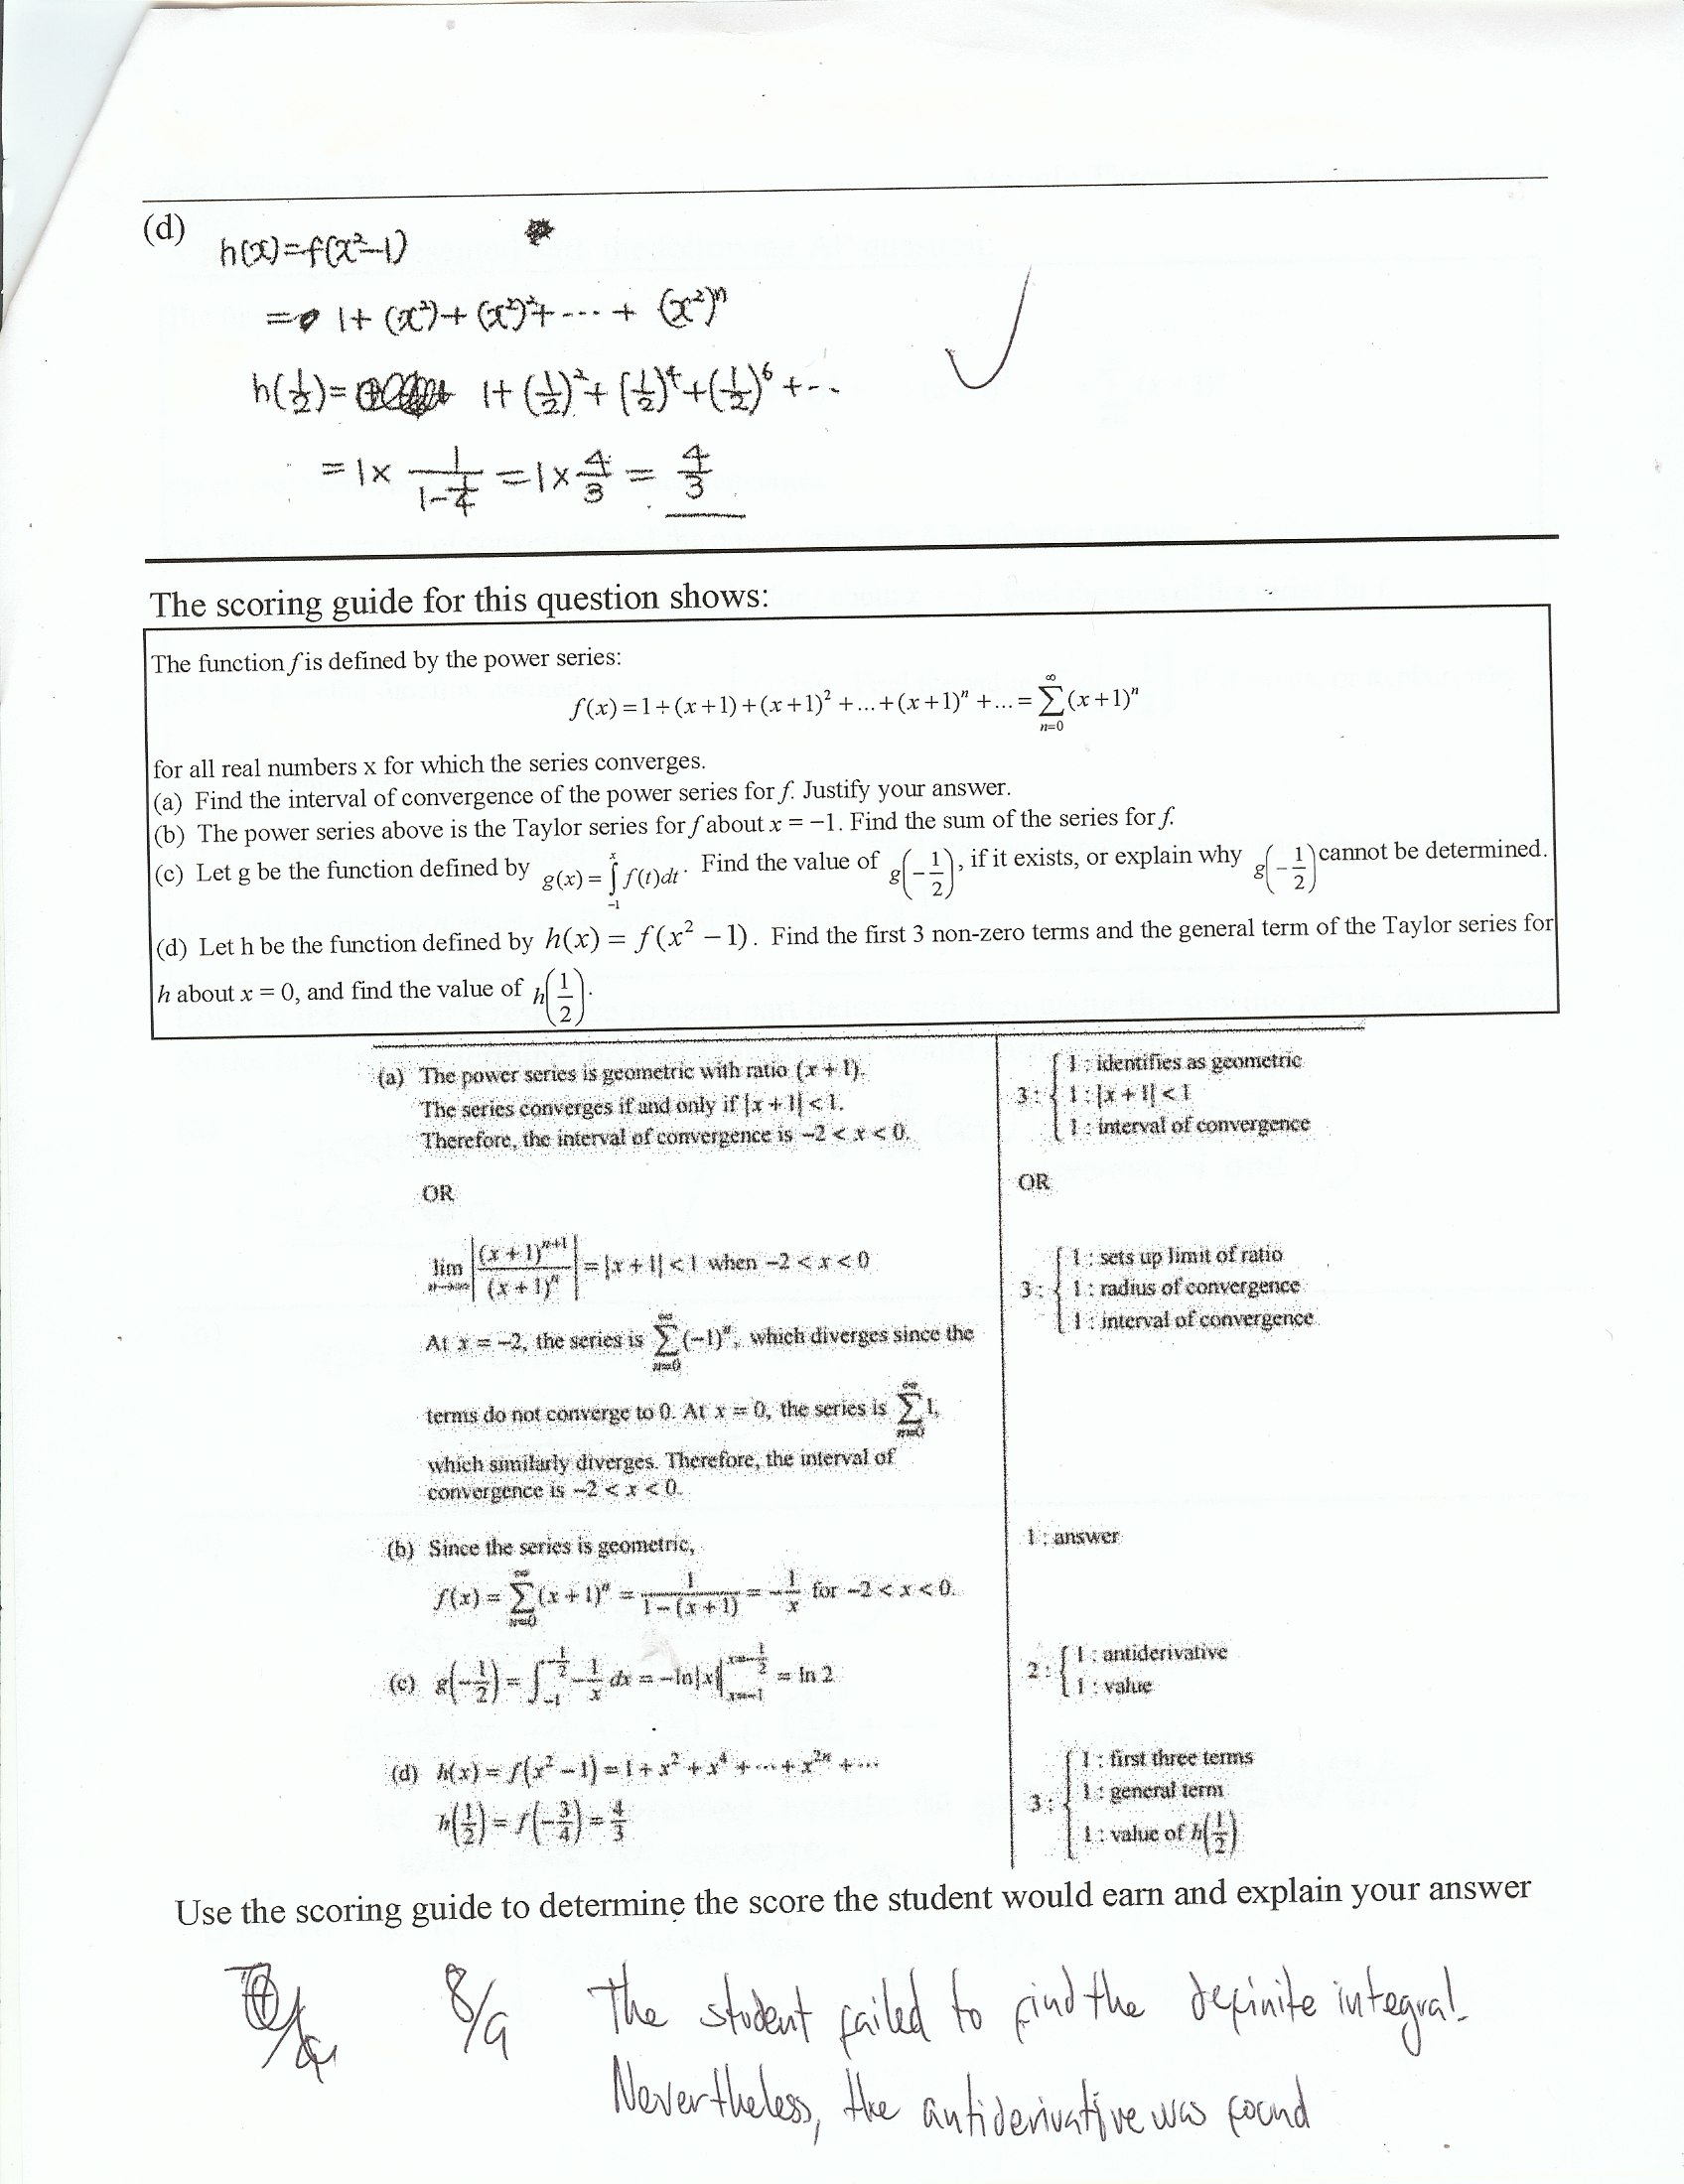 (d)
h(x)=f(x²-1)
= 1+ (x²)+ (x²)²+ ---- + (x²)ⁿ
h(1/2)= 1+ (1/2)²+ (1/2)⁴+(1/2)⁶ +---
=1× 1/(1-1/4) =1× 4/3 = 4/3
The scoring guide for this question shows:
The function f is defined by the power series:
f(x)=1+(x+1)+(x+1)²+...+(x+1)ⁿ+...= ∑_{n=0}^{∞}(x+1)ⁿ
for all real numbers x for which the series converges.
(a) Find the interval of convergence of the power series for f. Justify your answer.
(b) The power series above is the Taylor series for f about x = −1. Find the sum of the series for f.
(c) Let g be the function defined by g(x)=∫_{-1}^{x} f(t)dt. Find the value of g(−1/2), if it exists, or explain why g(−1/2) cannot be determined.
(d) Let h be the function defined by h(x) = f(x² − 1). Find the first 3 non-zero terms and the general term of the Taylor series for
h about x = 0, and find the value of h(1/2).
(a) The power series is geometric with ratio (x + 1).
The series converges if and only if |x + 1| < 1.
Therefore, the interval of convergence is −2 < x < 0.
3: { 1 : identifies as geometric
1 : |x + 1| < 1
1 : interval of convergence
OR
OR
lim_{n→∞} |(x + 1)ⁿ⁺¹/(x + 1)ⁿ| = |x + 1| < 1 when −2 < x < 0
At x = −2, the series is ∑_{n=0}^{∞}(−1)ⁿ, which diverges since the
terms do not converge to 0. At x = 0, the series is ∑_{n=0}^{∞}1,
which similarly diverges. Therefore, the interval of
convergence is −2 < x < 0.
3: { 1 : sets up limit of ratio
1 : radius of convergence
1 : interval of convergence
(b) Since the series is geometric,
f(x) = ∑_{n=0}^{∞}(x + 1)ⁿ = 1/(1−(x+1)) = −1/x for −2 < x < 0.
1 : answer
(c) g(−1/2) = ∫_{−1}^{−1/2} −1/x dx = −ln|x| |_{x=−1}^{x=−1/2} = ln 2
2: { 1 : antiderivative
1 : value
(d) h(x) = f(x² − 1) = 1 + x² + x⁴ + ··· + x²ⁿ + ···
h(1/2) = f(−3/4) = 4/3
3: { 1 : first three terms
1 : general term
1 : value of h(1/2)
Use the scoring guide to determine the score the student would earn and explain your answer
8/9 The student failed to find the definite integral.
Nevertheless, the antiderivative was found